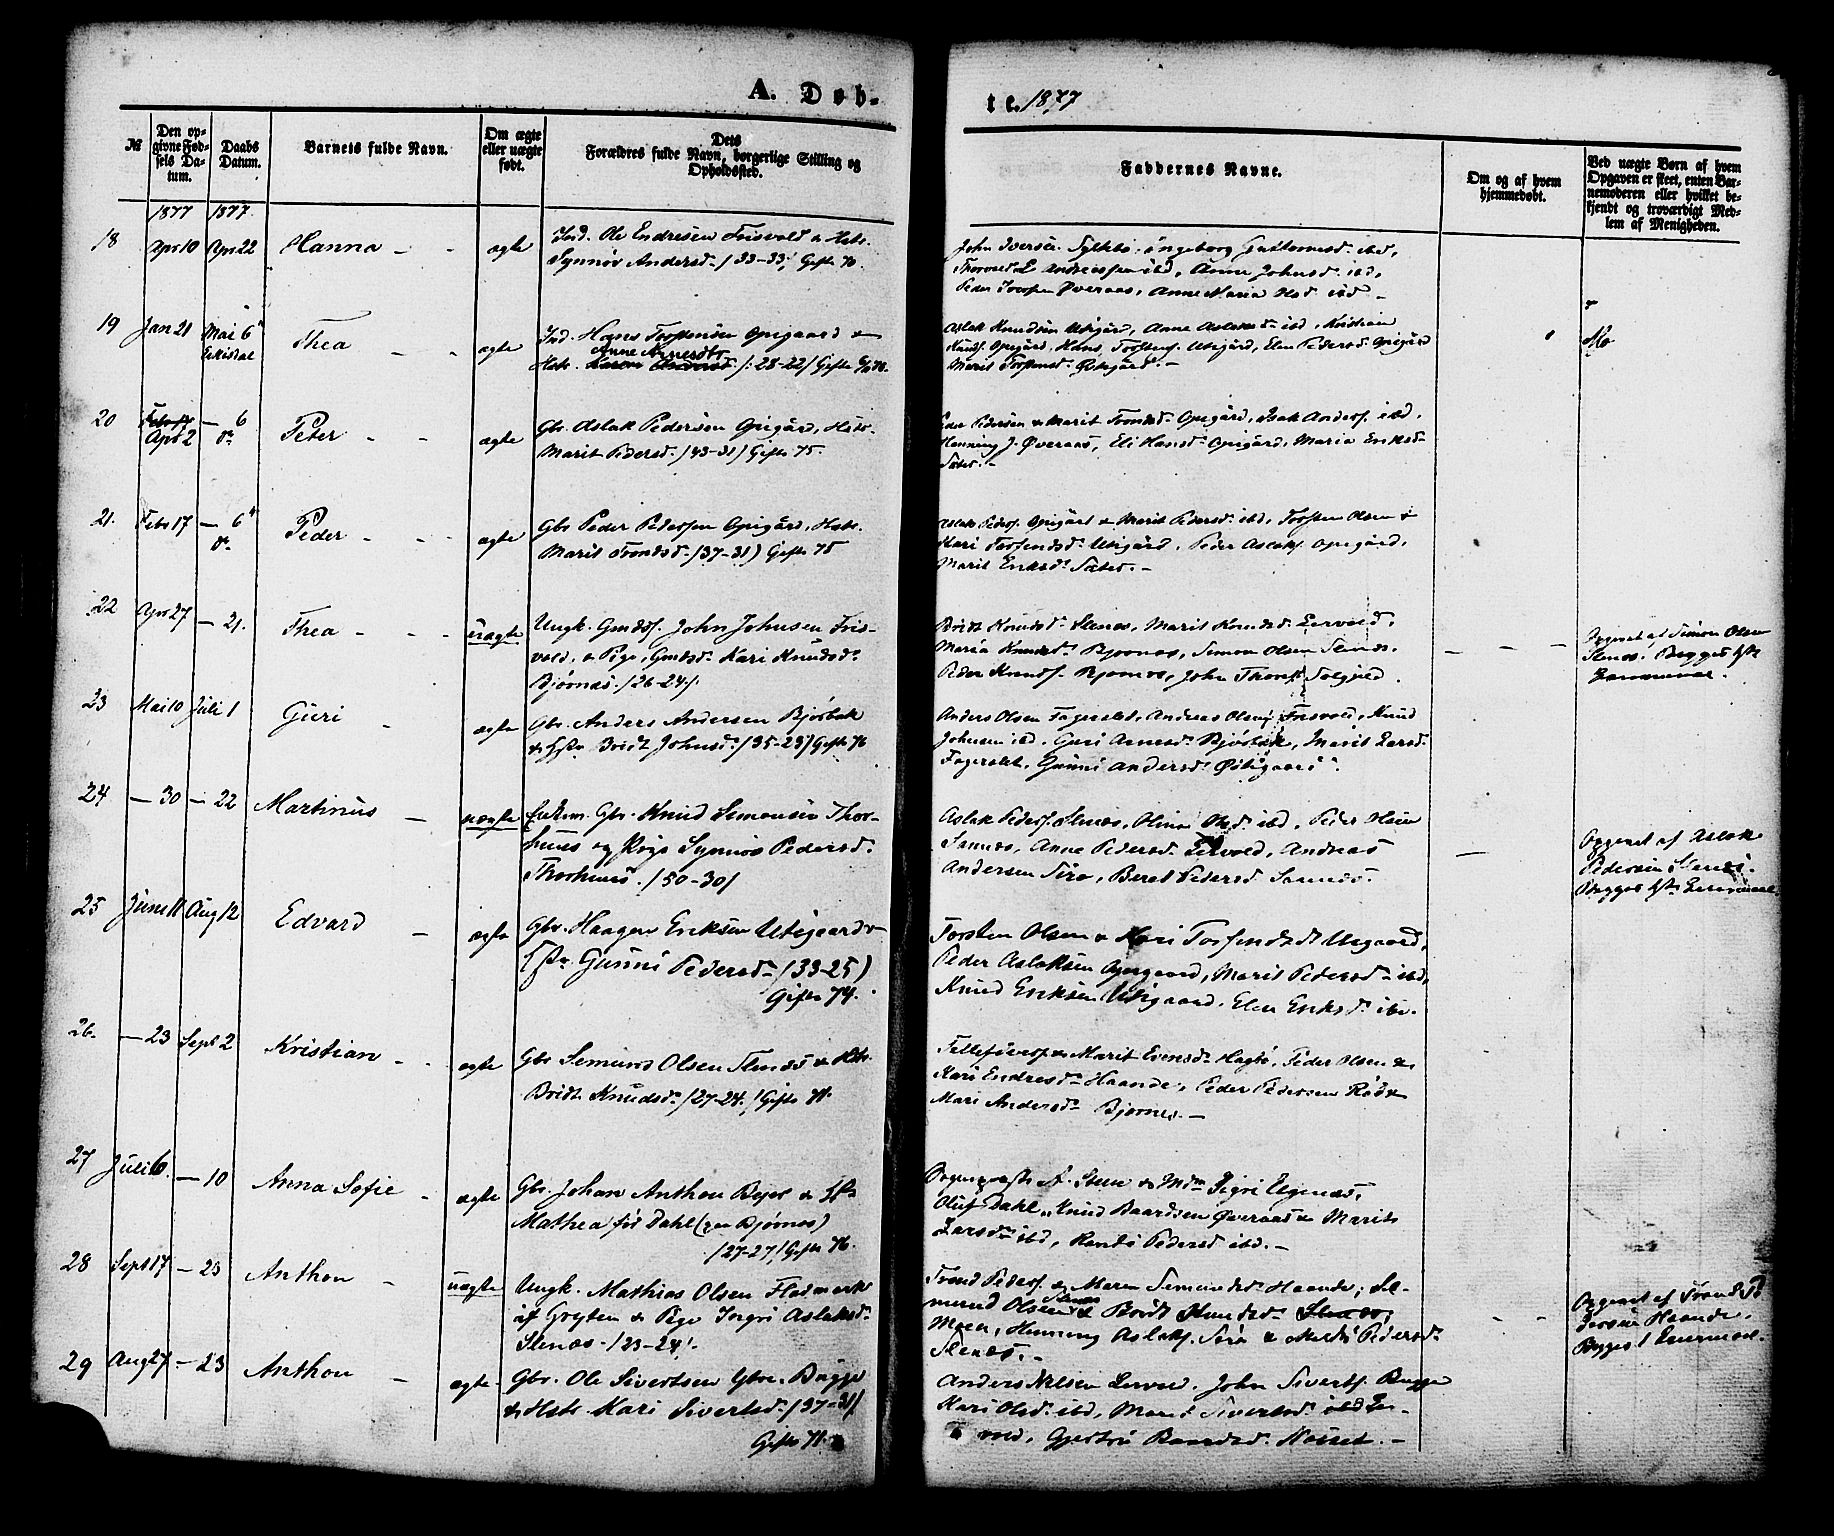 A. Døb-
te. 1877
№
Den op-
givne Fød-
sels Da-
tum.
Daabs
Datum.
Barnets fulde Navn.
Om ægte
eller uægte
født.
Dets
Forældres fulde Navn, borgerlige Stilling og
Opholdssted.
Faddernes Navne.
Om og af hvem
hjemmedøbt.
Ved uægte Børn af hvem
Opgaven er skeet, enten Bar-
nemoderen eller hvilket be-
kjendt og troværdigt Med-
lem af Menigheden.
1877 1877.
18 Apr 10 Apr 22 Hanna - - ægte
Ind. Ole Endresen Frisvold & Hstr.
Synnøv Andersd. /33-33/ Gifte 76.
John Iversen Sylthe, Ingeborg ibd,
Andreassen ibd, Anne Johnsd. ibd,
Peder Øveraas, Anne Maria ibd -
19 Jan 21 Mai 6 Thea - - ægte
Ind. Hans Torstensen Opigaard &
Anne Arnesdtr
Hstr. /:28-22/ Gifte 76.
Aslak Knudsen Utigård, Anne Aslaksd. ibd, Kristian
Knuds. Opigård, Hans Torstens. Utigård, Elen Pedersd. Opigård
Marit Torstensd. Utigård. -
Mo
20 Febr 17 Apr 2 - 6 do Peter - - ægte
Gbr. Aslak Pedersen Opigård, Hstr.
Marit Pedersd. /43-31/ Gifte 75.
Peder Pedersen & Marit Trondsd. Opigård, Isak Anders. ibd.
Henning J. Øveraas, Eli Hansd. Opigård, Maria Eriksd.
21. Febr 17 - 6 do Peder - - - ægte
Gbr Peder Pedersen Opigård, Hstr.
Marit Trondsd. /37-31) Gifte 75
Aslak Peders. Opigård & Marit Pedersd. ibd, Torsten Olsen &
Kari Torfendsd. Utigård, Peder Aslaks. Opigård,
Marit Eriksd. -
22 Apr 27 - 21. Thea - - - uægte
Ungk. Gmds. John Johnsen Fris-
vold, & Pige, Gmdsd. Kari Knudsd.
Bjørnes. /26-24/.
Bridt Knudsd. Stenes, Marit Knudsd. Lervold,
Maria Knudsd. Bjørnes, Semon Olsen Stenes.
Peder Knuds. Bjørnes, John
Opgivet af Simon Olsen
Stenes. Begges 1ste
Leiermaal.
23 Mai 10 Juli 1 Guri - ægte
Gbr. Anders Andersen Bjørbak
& Hstr. Bridt Johnsd. /35-23/ Gifte 76
Anders Olsen Fagerslet, Andreas Olsen Frisvold, Knud
Johnsen ibd. Guri Arnesd. Bjørbak, Marit Larsd.
Fagerslet, Gunni Andersd. Østigaard.
24 - 30 - 22 Martinus - uægte
Enkem. Gbr. Knud Semonsen Thor-
huus og Pige Synnøv Pedersd.
Thorhuus. /50-30/
Aslak Peders. Stenes, Olina Olsd. ibd, Peder Olsen
Stenes, Anne Pedersd. Lervold, Andreas
Andersen Sira, Beret Pedersd. Stenes.
Opgivet af Aslak
Pedersen Stenes.
Begges 1ste Leiermaal
25 Juni 11 Aug 12 Edvard - ægte
Gbr. Haagen Eriksen Utigaard &
Gunni Pedersd. /33-25)
Gifte 74.
Torsten Olsen & Kari Torfendsd. Utigaard,
Peder Aslaksen Opigaard, Marit Pedersd. ibd,
Knud Eriksen Utigaard, Elen Eriksd. ibd.
26. - 23 Sept 2 Kristian - - ægte
Gbr Semund Olsen Stenes & Hstr.
Bridt Knudsd. /27-24./ Gifte 71.
& Marit Evensd. Hagbø, Peder Olsen &
Kari Endresd. Haande, Peder Pedersen Rød &
Mari Andersd. Bjørnes. -
27 Juli 6. - 10 Anna Sofie - ægte
Gbr. Johan Anthon Beyer & H.
Mathea før Dahl (paa Bjørnes)
/27-27/ Gifte 76.
Sigri Utgenæs,
Oluf Dahl, Knud Baardsen Øveraas & Marit
Larsd. ibd, Randi Pedersd. ibd. -
28 Sept 17 - 23 Anthon - uægte
Ungk. Mathias Olsen Flatmark
af Grytten & Pige Ingri Aslaksd.
Stenes - /23-24/.
Trond Peders. & Maren Semundsd. Haande, Se-
mund Olsen Stenes & Bridt Knudsd. Stenes,
Moen, Henning Aslaks. Sira & Pedersd.
Stenes. -
Opgivet af Trond P
Haande.
Begges 1 Leiermaal.
29 Aug 27 - 23 Anthon - ægte.
Gbr. Ole Sivertsen Gbr. Bugge
& Hstr. Kari Sivertsd. /37-31/
Gifte 71.
Anders Nilsen Lervold. John Siverts. Bugge
Kari Olsd. ibd, Marit Sivertsd. Ler-
vold, Gjertru Baardsd. Nesset. -